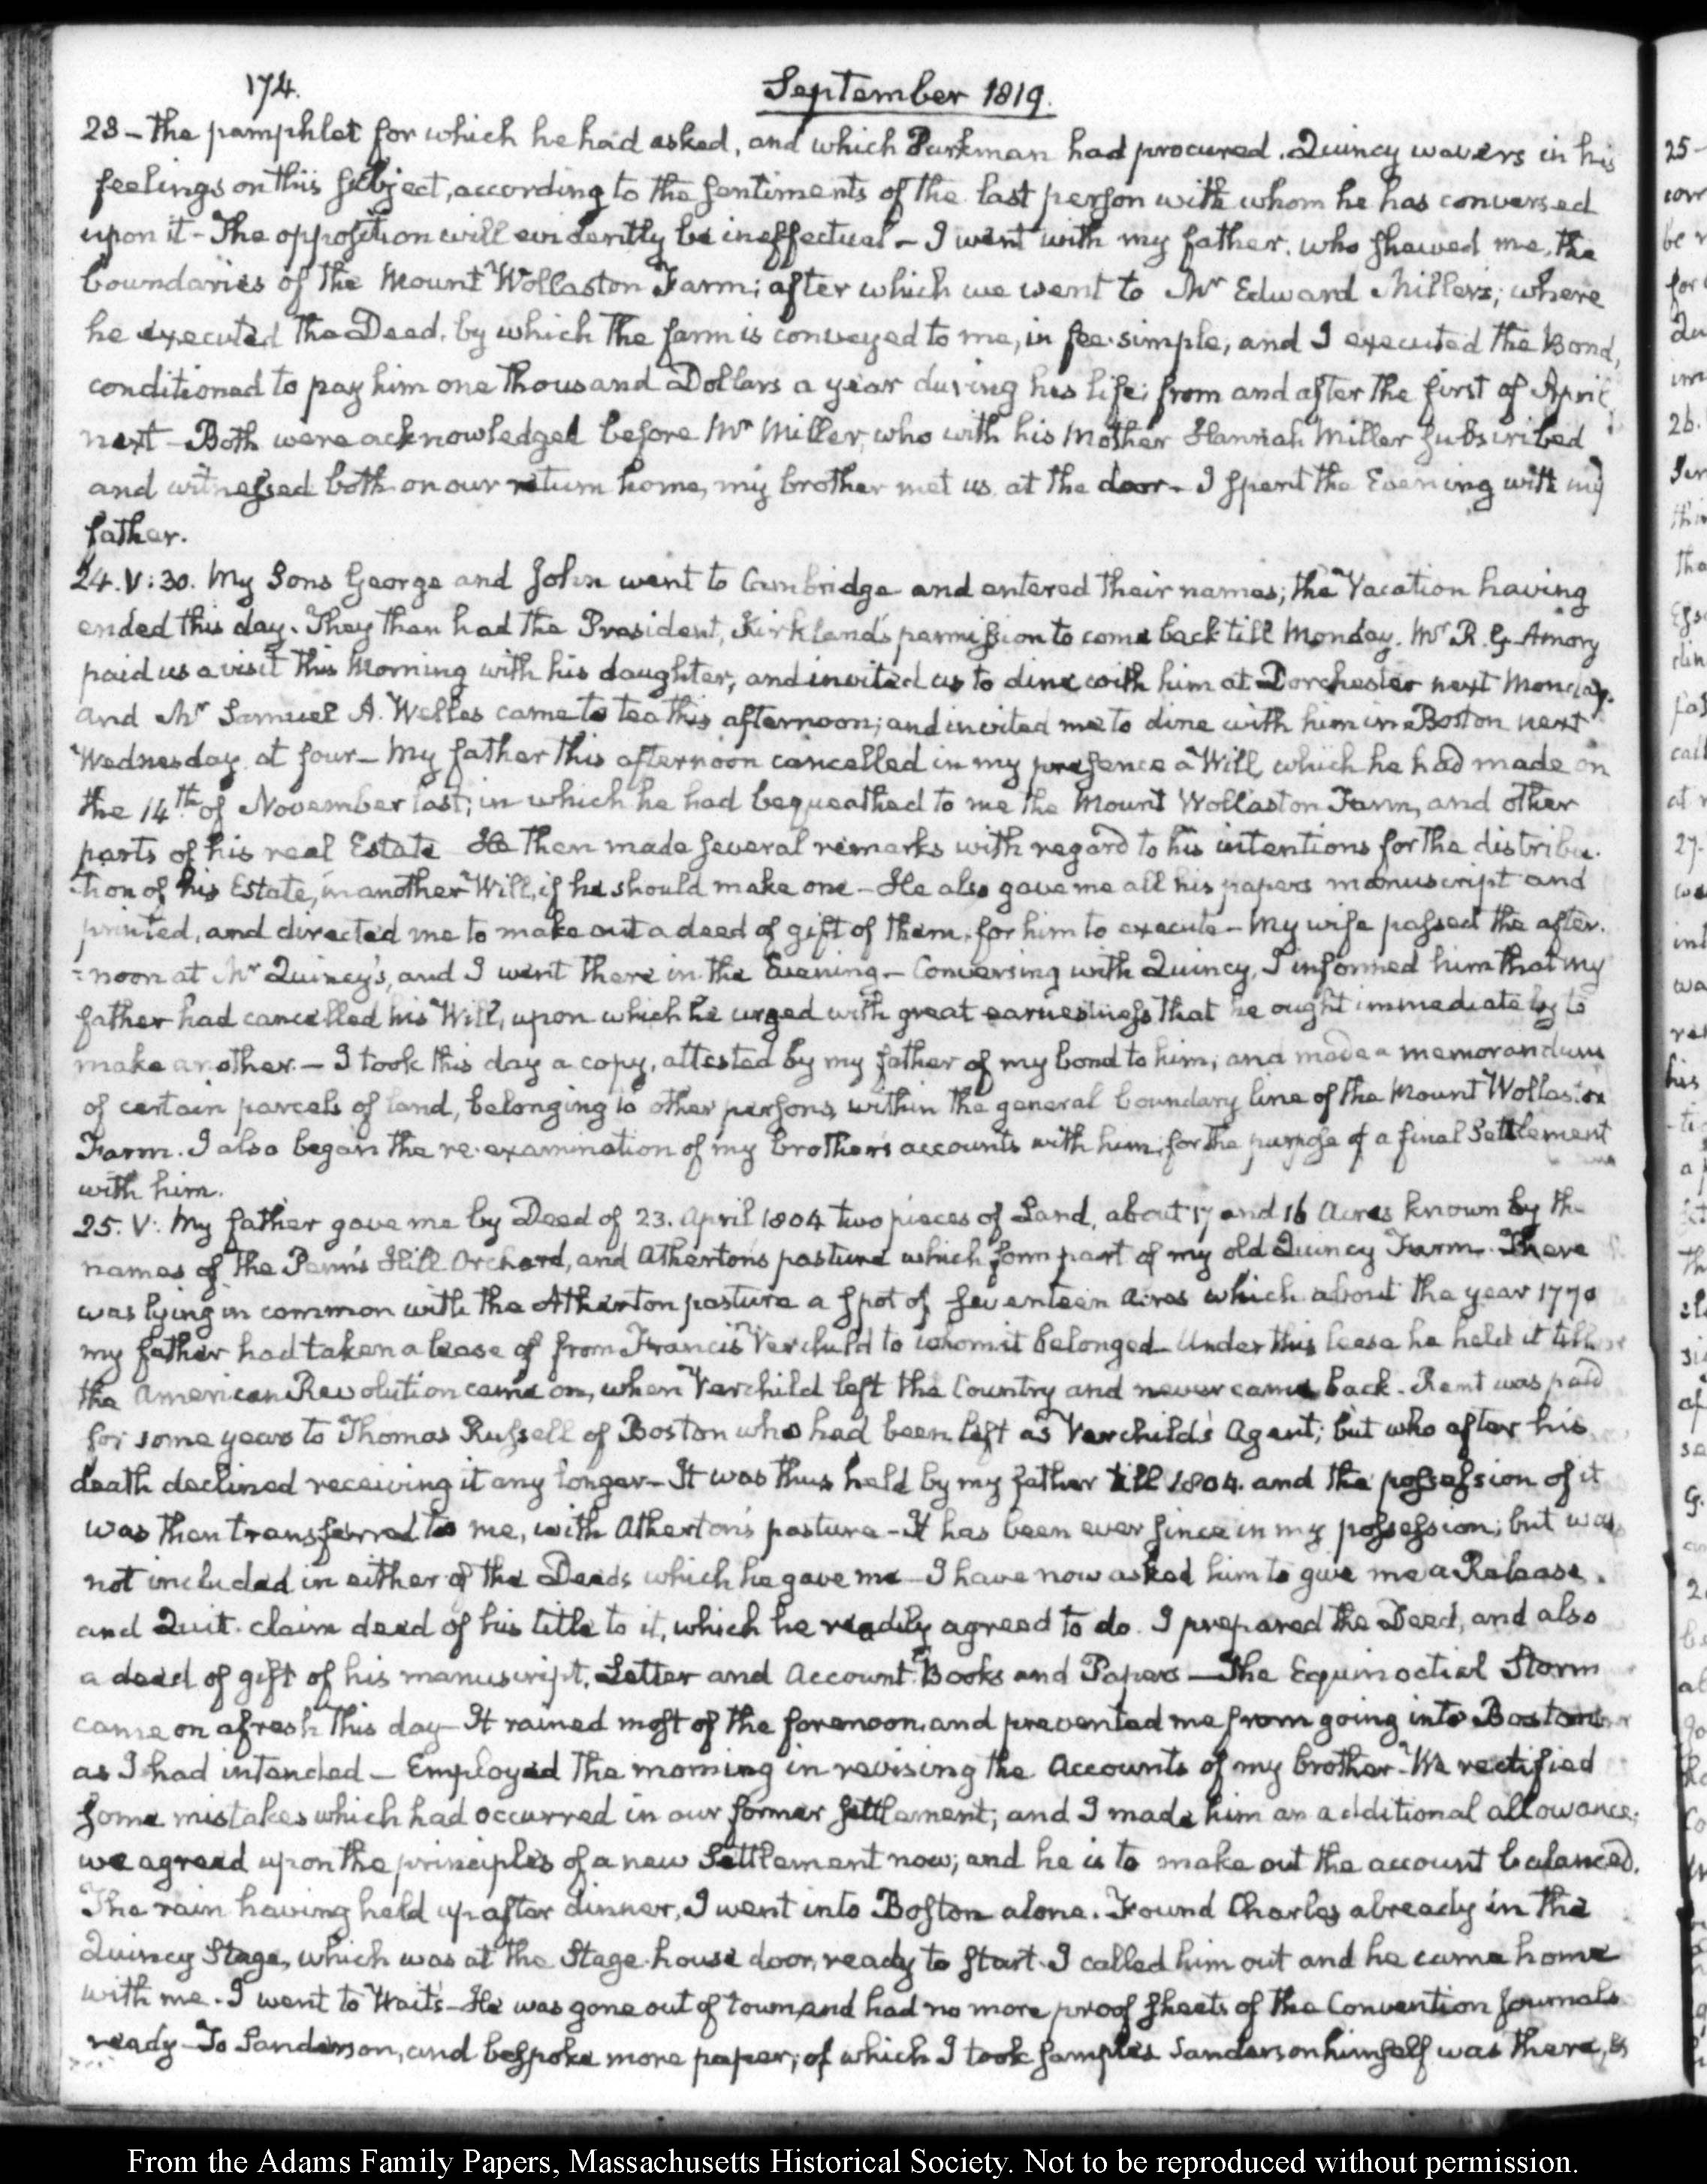 174.
September 1819.
23 - the pamphlet for which he had asked, and which Parkman had procured. Quincy wavers in his
feelings on this subject, according to the sentiments of the last person with whom he has conversed
upon it - The opposition will evidently be ineffectual - I went with my father, who shewed me, the
boundaries of the Mount Wollaston Farm; after which we went to Mr Edward Miller's; where
he executed the Deed, by which the farm is conveyed to me, in fee-simple, and I executed the Bond,
conditioned to pay him one thousand Dollars a year during his life; from and after the first of April
next - Both were acknowledged before Mr Miller, who with his Mother Hannah Miller subscribed
and witnessed both on our return home, my brother met us at the door - I spent the Evening with my
father.
24. V:30. My Sons George and John went to Cambridge and entered their names; the Vacation having
ended this day. They then had the President, Kirkland's permission to come back till Monday. Mr R. G. Amory
paid us a visit this Morning with his daughter, and invited us to dine with him at Dorchester next Monday.
and Mr Samuel A. Welles came to tea this afternoon; and invited me to dine with him in Boston next
Wednesday at four - My father this afternoon cancelled in my presence a Will, which he had made on
the 14th of November last; in which he had bequeathed to me the Mount Wollaston Farm, and other
parts of his real Estate He then made several remarks with regard to his intentions for the distribu-
-tion of his Estate, in another Will, if he should make one - He also gave me all his papers manuscript and
printed, and directed me to make out a deed of gift of them, for him to execute - My wife passed the after-
=noon at Mr Quincy's, and I went there in the Evening - Conversing with Quincy, I informed him that my
father had cancelled his Will, upon which he urged with great earnestness that he ought immediately to
make another - I took this day a copy, attested by my father of my bond to him; and made a memorandum
of certain parcels of land, belonging to other persons, within the general boundary line of the Mount Wollaston
Farm. I also began the re-examination of my brother's accounts with him, for the purpose of a final Settlement
with him.
25. V: My father gave me by Deed of 23. April 1804 two pieces of Land, about 17 and 16 Acres known by the
names of the Penn's Hill Orchard, and Atherton's pasture which form part of my old Quincy Farm. There
was lying in common with the Atherton pasture a spot of seventeen Acres which about the year 1770
my father had taken a lease of from Francis Verchild to whom it belonged - Under this lease he held it till
the American Revolution came on, when Verchild left the Country and never came back - Rent was paid
for some years to Thomas Russell of Boston who had been left as Verchild's Agent; but who after his
death declined receiving it any longer - It was thus held by my father till 1804. and the possession of it
was then transferred to me, with Atherton's pasture - It has been ever since in my possession; but was
not included in either of the Deeds which he gave me - I have now asked him to give me a Release
and Quit-claim deed of his title to it, which he readily agreed to do. I prepared the Deed, and also
a deed of gift of his manuscript, Letter and Account Books and Papers - The Equinoctial Storm
came on afresh this day - It rained most of the forenoon, and prevented me from going into Boston
as I had intended - Employed the morning in revising the Accounts of my brother - We rectified
some mistakes which had occurred in our former settlement; and I made him an additional allowance;
we agreed upon the principles of a new Settlement now; and he is to make out the account balanced.
The rain having held up after dinner, I went into Boston alone. Found Charles already in the
Quincy Stage, which was at the Stage-house door, ready to start - I called him out and he came home
with me. I went to Wait's - He was gone out of town, and had no more proof sheets of the Convention Journals
ready - To Sanderson, and bespoke more paper; of which I took samples Sanderson himself was there, &
From the Adams Family Papers, Massachusetts Historical Society. Not to be reproduced without permission.